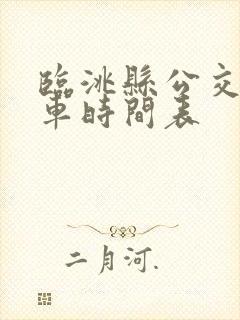 臨洮縣公交
車時間表
二月河.